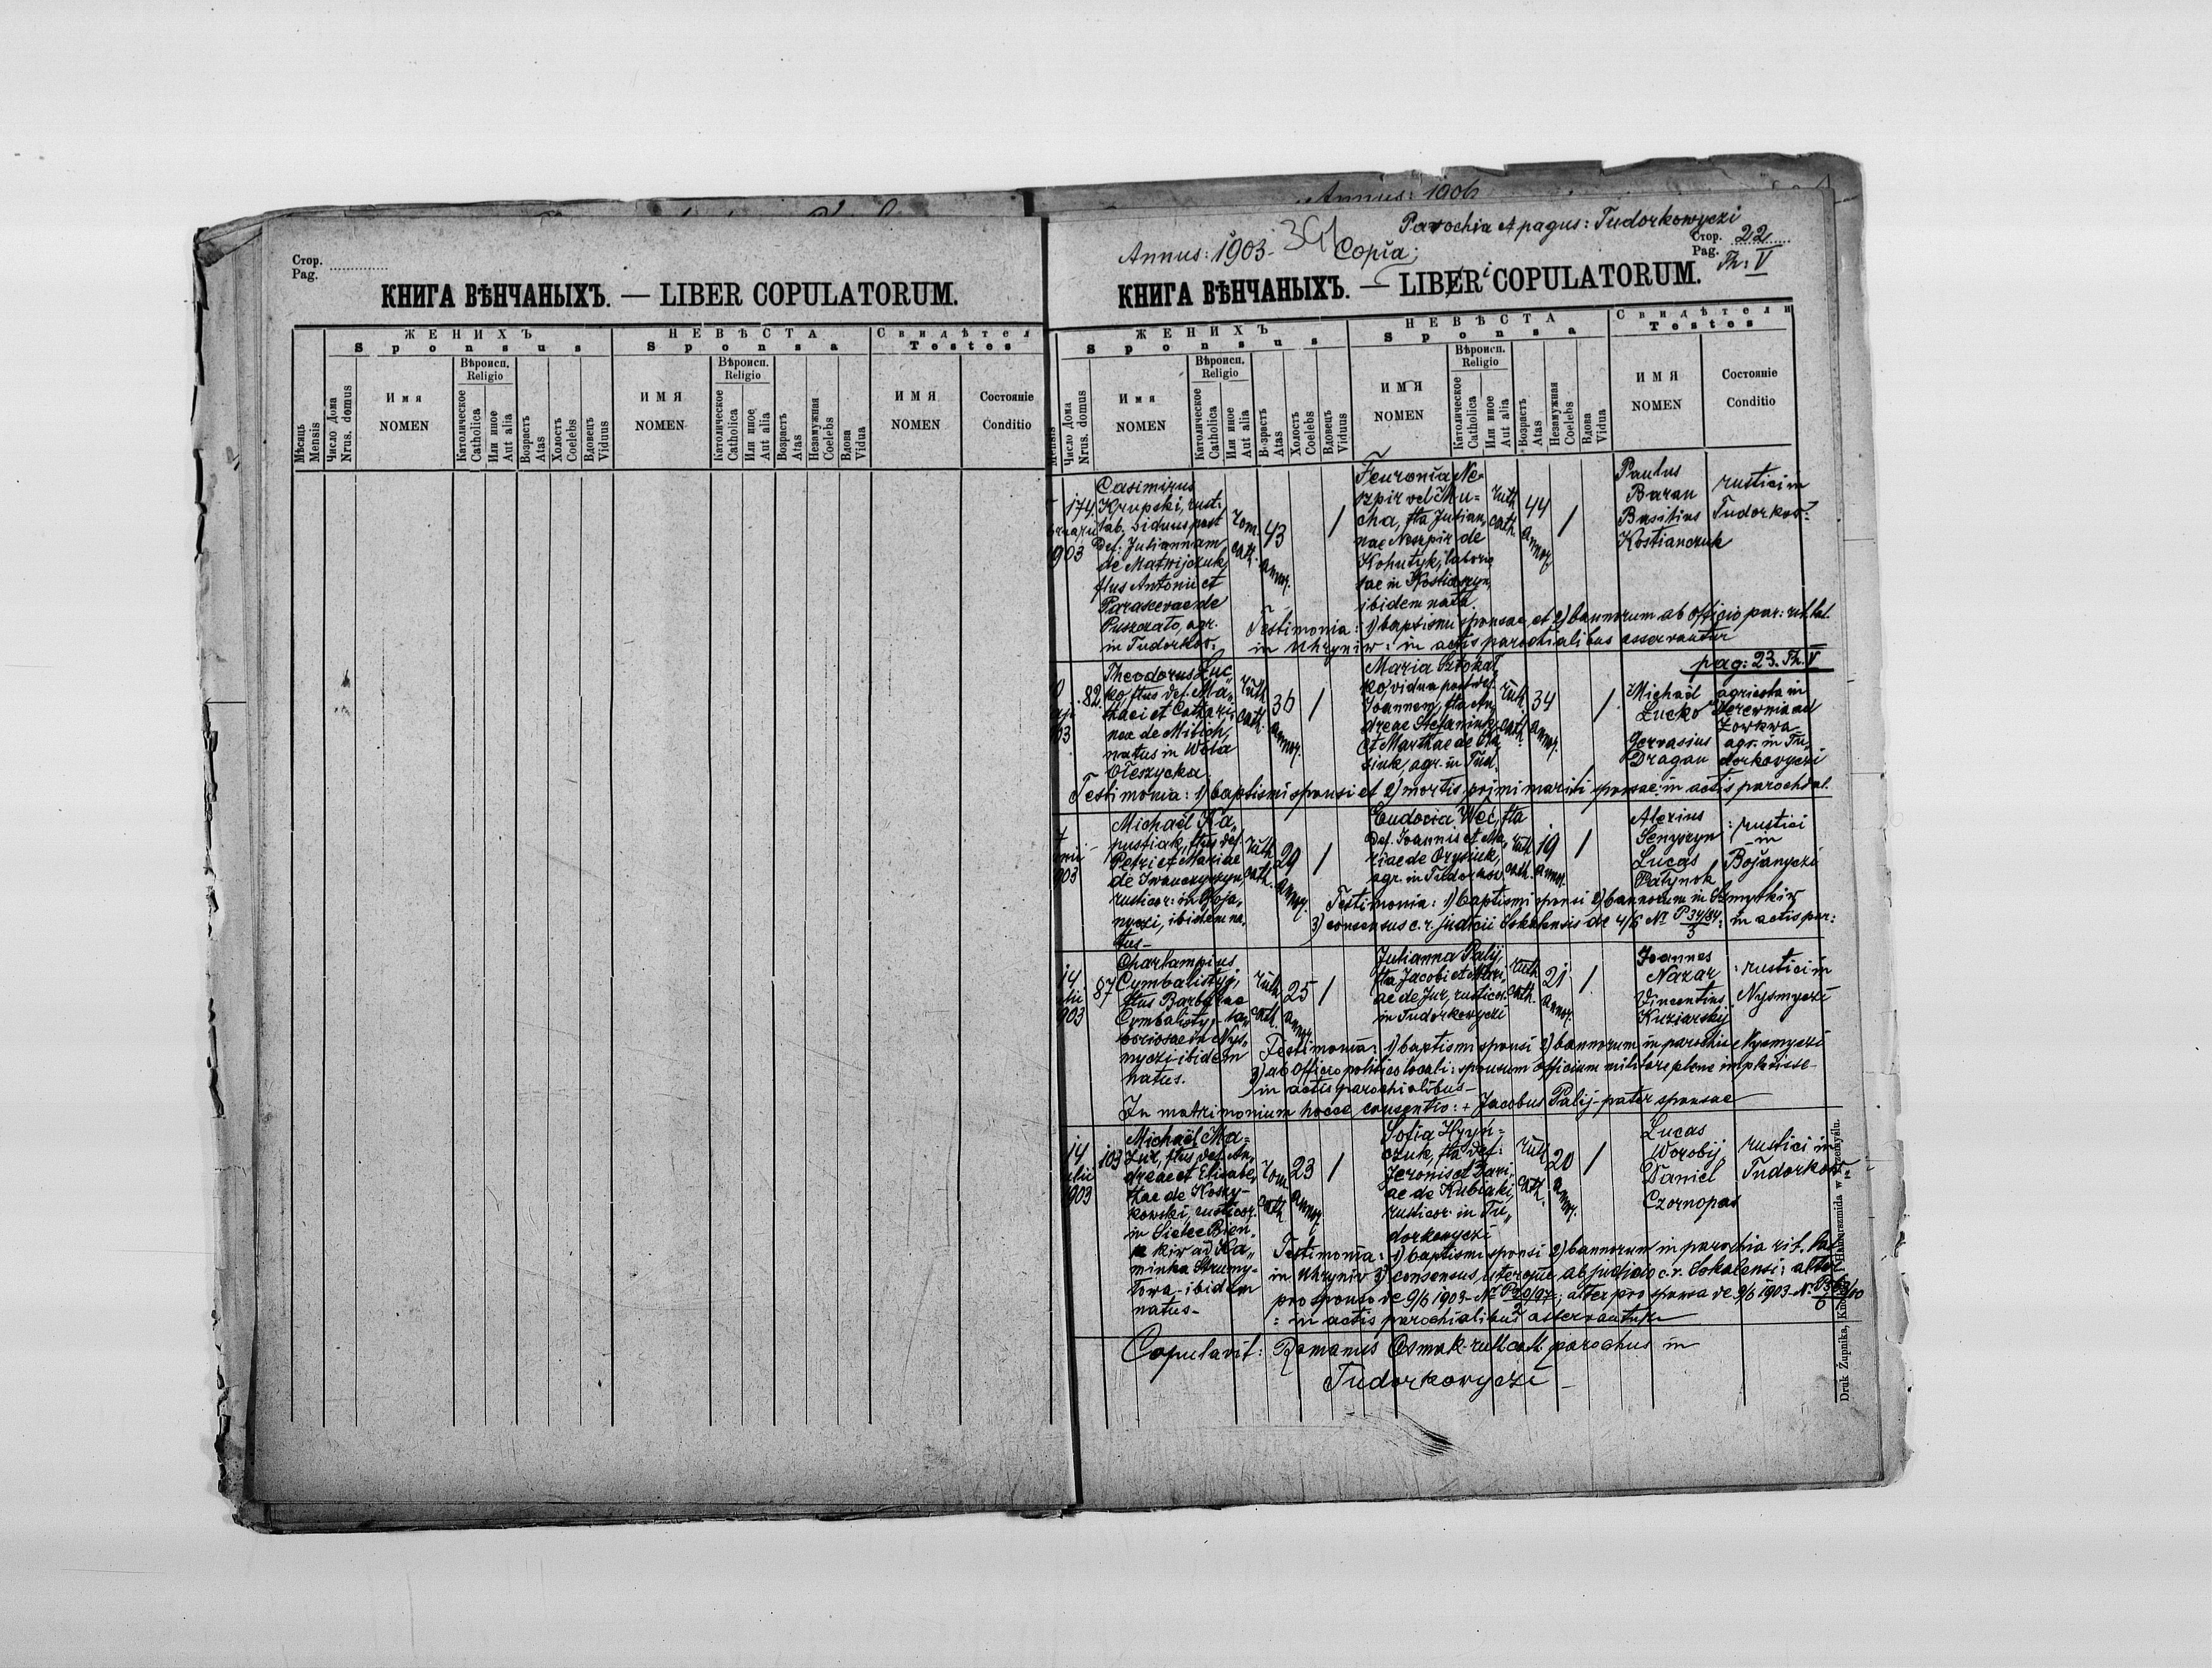 Annus: 1906
Стор.
Pag.
КНИГА ВѢНЧАНЫХЪ. — LIBER COPULATORUM.
ЖЕНИХЪ
Sponsus
НЕВѢСТА
Sponsa
Свидѣтел
Testes
Мѣсяць
Mensis
Число Дома
Nrus. domus
Имя
NOMEN
Вѣроисп.
Religio
Католическое
Catholica
Или иное
Aut alia
Возрастъ
Atas
Холостъ
Coelebs
Вдовець
Viduus
ИМЯ
NOMEN
Вѣроисп.
Religio
Католическое
Catholica
Или иное
Aut alia
Возрастъ
Atas
Незамужная
Coelebs
Вдова
Vidua
ИМЯ
NOMEN
Состояніе
Conditio
Parochia et pagus: Tudorkowyczi
Annus: 1903.
Copia:
Стор.
Pag. 22
Th: V
КНИГА ВѢНЧАНЫХЪ. — LIBERi COPULATORUM.
ЖЕНИХЪ
Sponsus
НЕВѢСТА
Sponsa
Свидѣтели
Testes
Mensis
Число Дома
Nrus. domus
Имя
NOMEN
Вѣроисп.
Religio
Католическое
Catholica
Или иное
Aut alia
Возрастъ
Atas
Холостъ
Coelebs
Вдовець
Viduus
ИМЯ
NOMEN
Вѣроисп.
Religio
Католическое
Catholica
Или иное
Aut alia
Возрастъ
Atas
Незамужная
Coelebs
Вдова
Vidua
ИМЯ
NOMEN
Состояніе
Conditio
bruarii
903
174.
Casimirus
Krupski, rust.
lab. viduus post
def: Juliannam
de Matwijczuk,
flus Antonii et
Parascevae de
Puszato, agr.
in Tudorkow.
rom.
cath.
43
annor.
/
Feuronia Ne-
szpir vel Mu-
cha, fta Julian-
nae Neszpir de
Kohutyk, laborio
sae in Kostiaszyn,
ibidem nata.
ruth.
cath.
44
annor.
/
Paulus
Baran
Basilius
Kostianczuk
rustici in
Tudorkow:
Testimonia: 1) baptismi sponsae et 2) bannorum ab officio par: rit. lat.
in Uhryniw: in actis parochialibus asservantur
pag: 23. Th. V
903
82.
Theodorus Luc
ko, flus def. Ma-
thaei et Cathari-
nae de Mitich,
natus in Wola
Oleszycka.
ruth.
cath.
36
annor.
/
Maria Sztokał
ko, vidua post def.
Joannem, fta An-
dreae Stefaniuk
et Marthae de Ola
siuk, agr. in Tud.
ruth.
cath.
34
annor.
/
Michaël
Lucko
Gervasius
Dragan
agricola in
Derewnia ad
Zowkwa
agr. in Tu-
dorkowyczi
Testimonia: 1) baptismi sponsi et 2) mortis primi mariti sponsae: in actis parochial.
903
Michaël Ka-
pustiak, flus def.
Petri et Mariae
de Iwanczyszyn,
rusticor: in Boja-
nyczi, ibidem na-
tus-
ruth.
cath.
29
annor.
/
Eudocia Weć, fta
def. Joannis et Ma-
riae de Orysiuk,
agr. in Tudorkow.
ruth.
cath.
19
annor.
/
Alexius
Senyszyn
Lucas
Patynok
: rustici
in
Bojanyczi
Testimonia: 1) baptismi sponsi 2) bannorum in Szmytkiw
3) consensus c. r. judicii Sokalensis de 4/6 No P 34/84/3: in actis par:
14
903
87
Charlampius
Cymbalistyj,
flus Barbarae
Cymbalisty, la-
boriosae in Nys-
myczi ibidem
natus.
ruth.
cath.
25
annor.
/
Julianna Palij,
fta Jacobi et Mari-
ae de Jur, rusticor.
in Tudorkowyczi
ruth.
cath.
21
annor.
/
Joannes
Nazar
Vincentius
Kuziarskij
: rustici in
Nysmyczi
Testimonia: 1) baptismi sponsi 2) bannorum in parochia Nysmyczi
3) ab officio politico locali: sponsum officium militare plene implevisse-
in actis parochialibus-
In matrimonium hocce consentio: + Jacobus Palij- pater sponsae
14
ulii
903
103
Michaël Ma-
zur, flus def. An-
dreae et Elisabe-
thae de Kosky-
kowski, rusticor.
in Sielec Bien-
kiw ad Ka-
minka Strumy-
lowa- ibidem
natus-
rom.
cath.
23
annor.
/
Sofia Hryn-
czuk, fta def:
Jeronis et Dari-
ae de Kubiaki,
rusticor. in Tu-
dorkowyczi
ruth.
cath.
20
annor.
/
Lucas
Worobij
Daniel
Czornopas
rustici in
Tudorkow
Testimonia: 1) baptismi sponsi 2) bannorum in parochia rit. lat.
in Uhryniv 3) consensus uterque ab judicio c. r. Sokalensi: alter
pro sponso de 9/6 1903- No P 20/97; alter pro sponsa de 9/6 1903- No
: in actis parochialibus asservantur
Copulavit: Romanus Osmak- ruth. cath. parochus in
Tudorkowyczi-
Druk Żupnika, Knollera i Hamerszmida w Przemyślu.